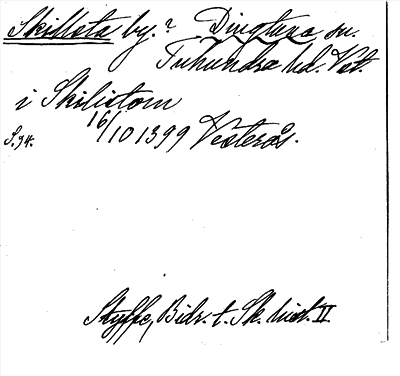 Skillsta by.? Dingtuna sn.
Tuhundra hd. Vstl.
i Skilistom
S. 94. 16/10 1399 Vesterås.
Styffe, Bidr. t. Sk. hist. II